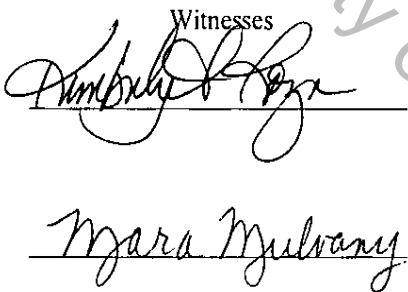 Witnesses
Kimberly
Mara Mulvany